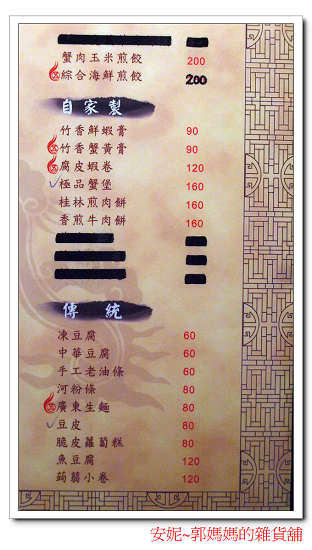 蟹肉玉米煎餃 200
綜合海鮮煎餃 200
自家製
竹香鮮蝦膏 90
竹香蟹黃膏 90
腐皮蝦卷 120
極品蟹堡 160
桂林煎肉餅 160
香煎牛肉餅 160
傳統
凍豆腐 60
中華豆腐 60
手工老油條 60
河粉條 80
廣東生麵 80
豆皮 80
脆皮蘿蔔糕 80
魚豆腐 120
蒟蒻小卷 120
安妮~郭媽媽的雜貨舖